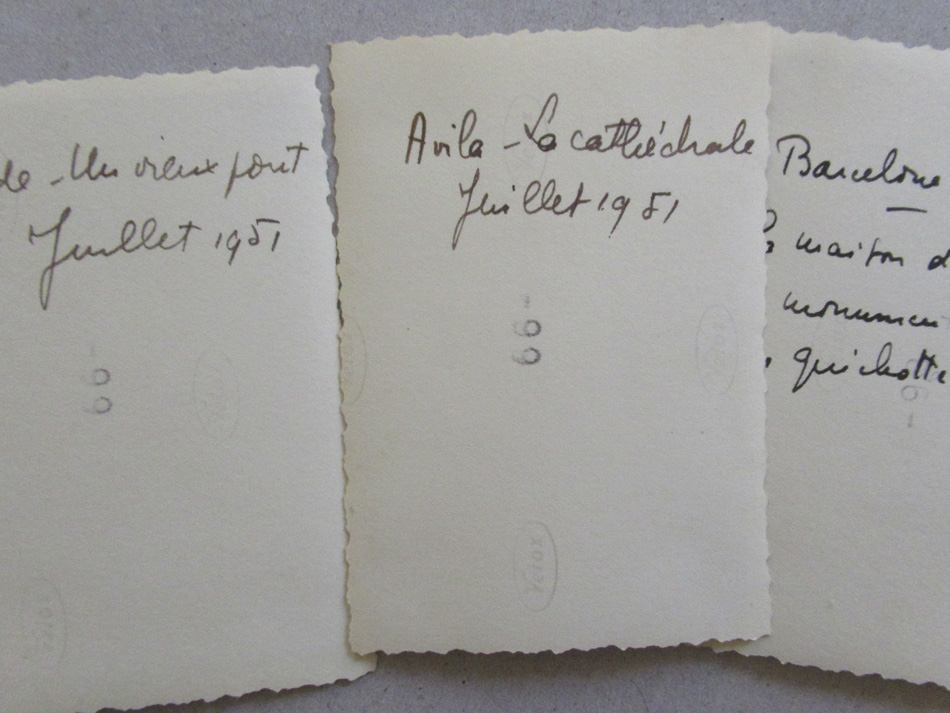 de - Un vieux pont
Juillet 1951
66-
Avila - La cathédrale
Juillet 1951
66-
Velox
Velox
Barcelone
maison d
monumen
quichotte
6-